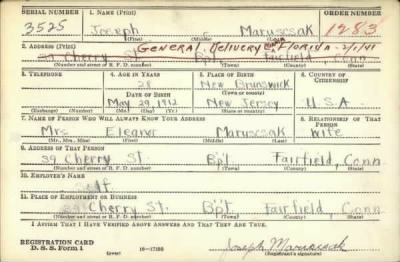 SERIAL NUMBER 1. NAME (Print) ORDER NUMBER
3525 Joseph Maruscsak 1283
(First) (Middle) (Last)
General Delivery Florida 2/1/41
2. ADDRESS (Print)
39 Cherry St. Bpt. Fairfield, Conn
(Number and street or R. F. D. number) (Town) (County) (State)
3. TELEPHONE 4. AGE IN YEARS 5. PLACE OF BIRTH 6. COUNTRY OF CITIZENSHIP
28 New Brunswick
DATE OF BIRTH (Town or county)
May 29 1912 New Jersey U.S.A.
(Exchange) (Number) (Mo.) (Day) (Yr.) (State or country)
7. NAME OF PERSON WHO WILL ALWAYS KNOW YOUR ADDRESS 8. RELATIONSHIP OF THAT PERSON
Mrs. Eleanor Maruscsak Wife
(Mr., Mrs., Miss) (First) (Middle) (Last)
9. ADDRESS OF THAT PERSON
39 Cherry St. Bpt. Fairfield, Conn
(Number and street or R. F. D. number) (Town) (County) (State)
10. EMPLOYER'S NAME
Self.
11. PLACE OF EMPLOYMENT OR BUSINESS
39 Cherry St. Bpt Fairfield Conn
(Number and street or R. F. D. number) (Town) (County) (State)
I AFFIRM THAT I HAVE VERIFIED ABOVE ANSWERS AND THAT THEY ARE TRUE.
REGISTRATION CARD
D. S. S. Form 1 (over) 16-17105 Joseph Maruscsak
(Registrant's signature)